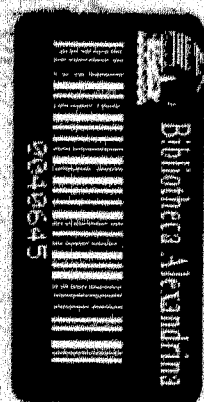 Bibliotheca Alexandrina
0040645